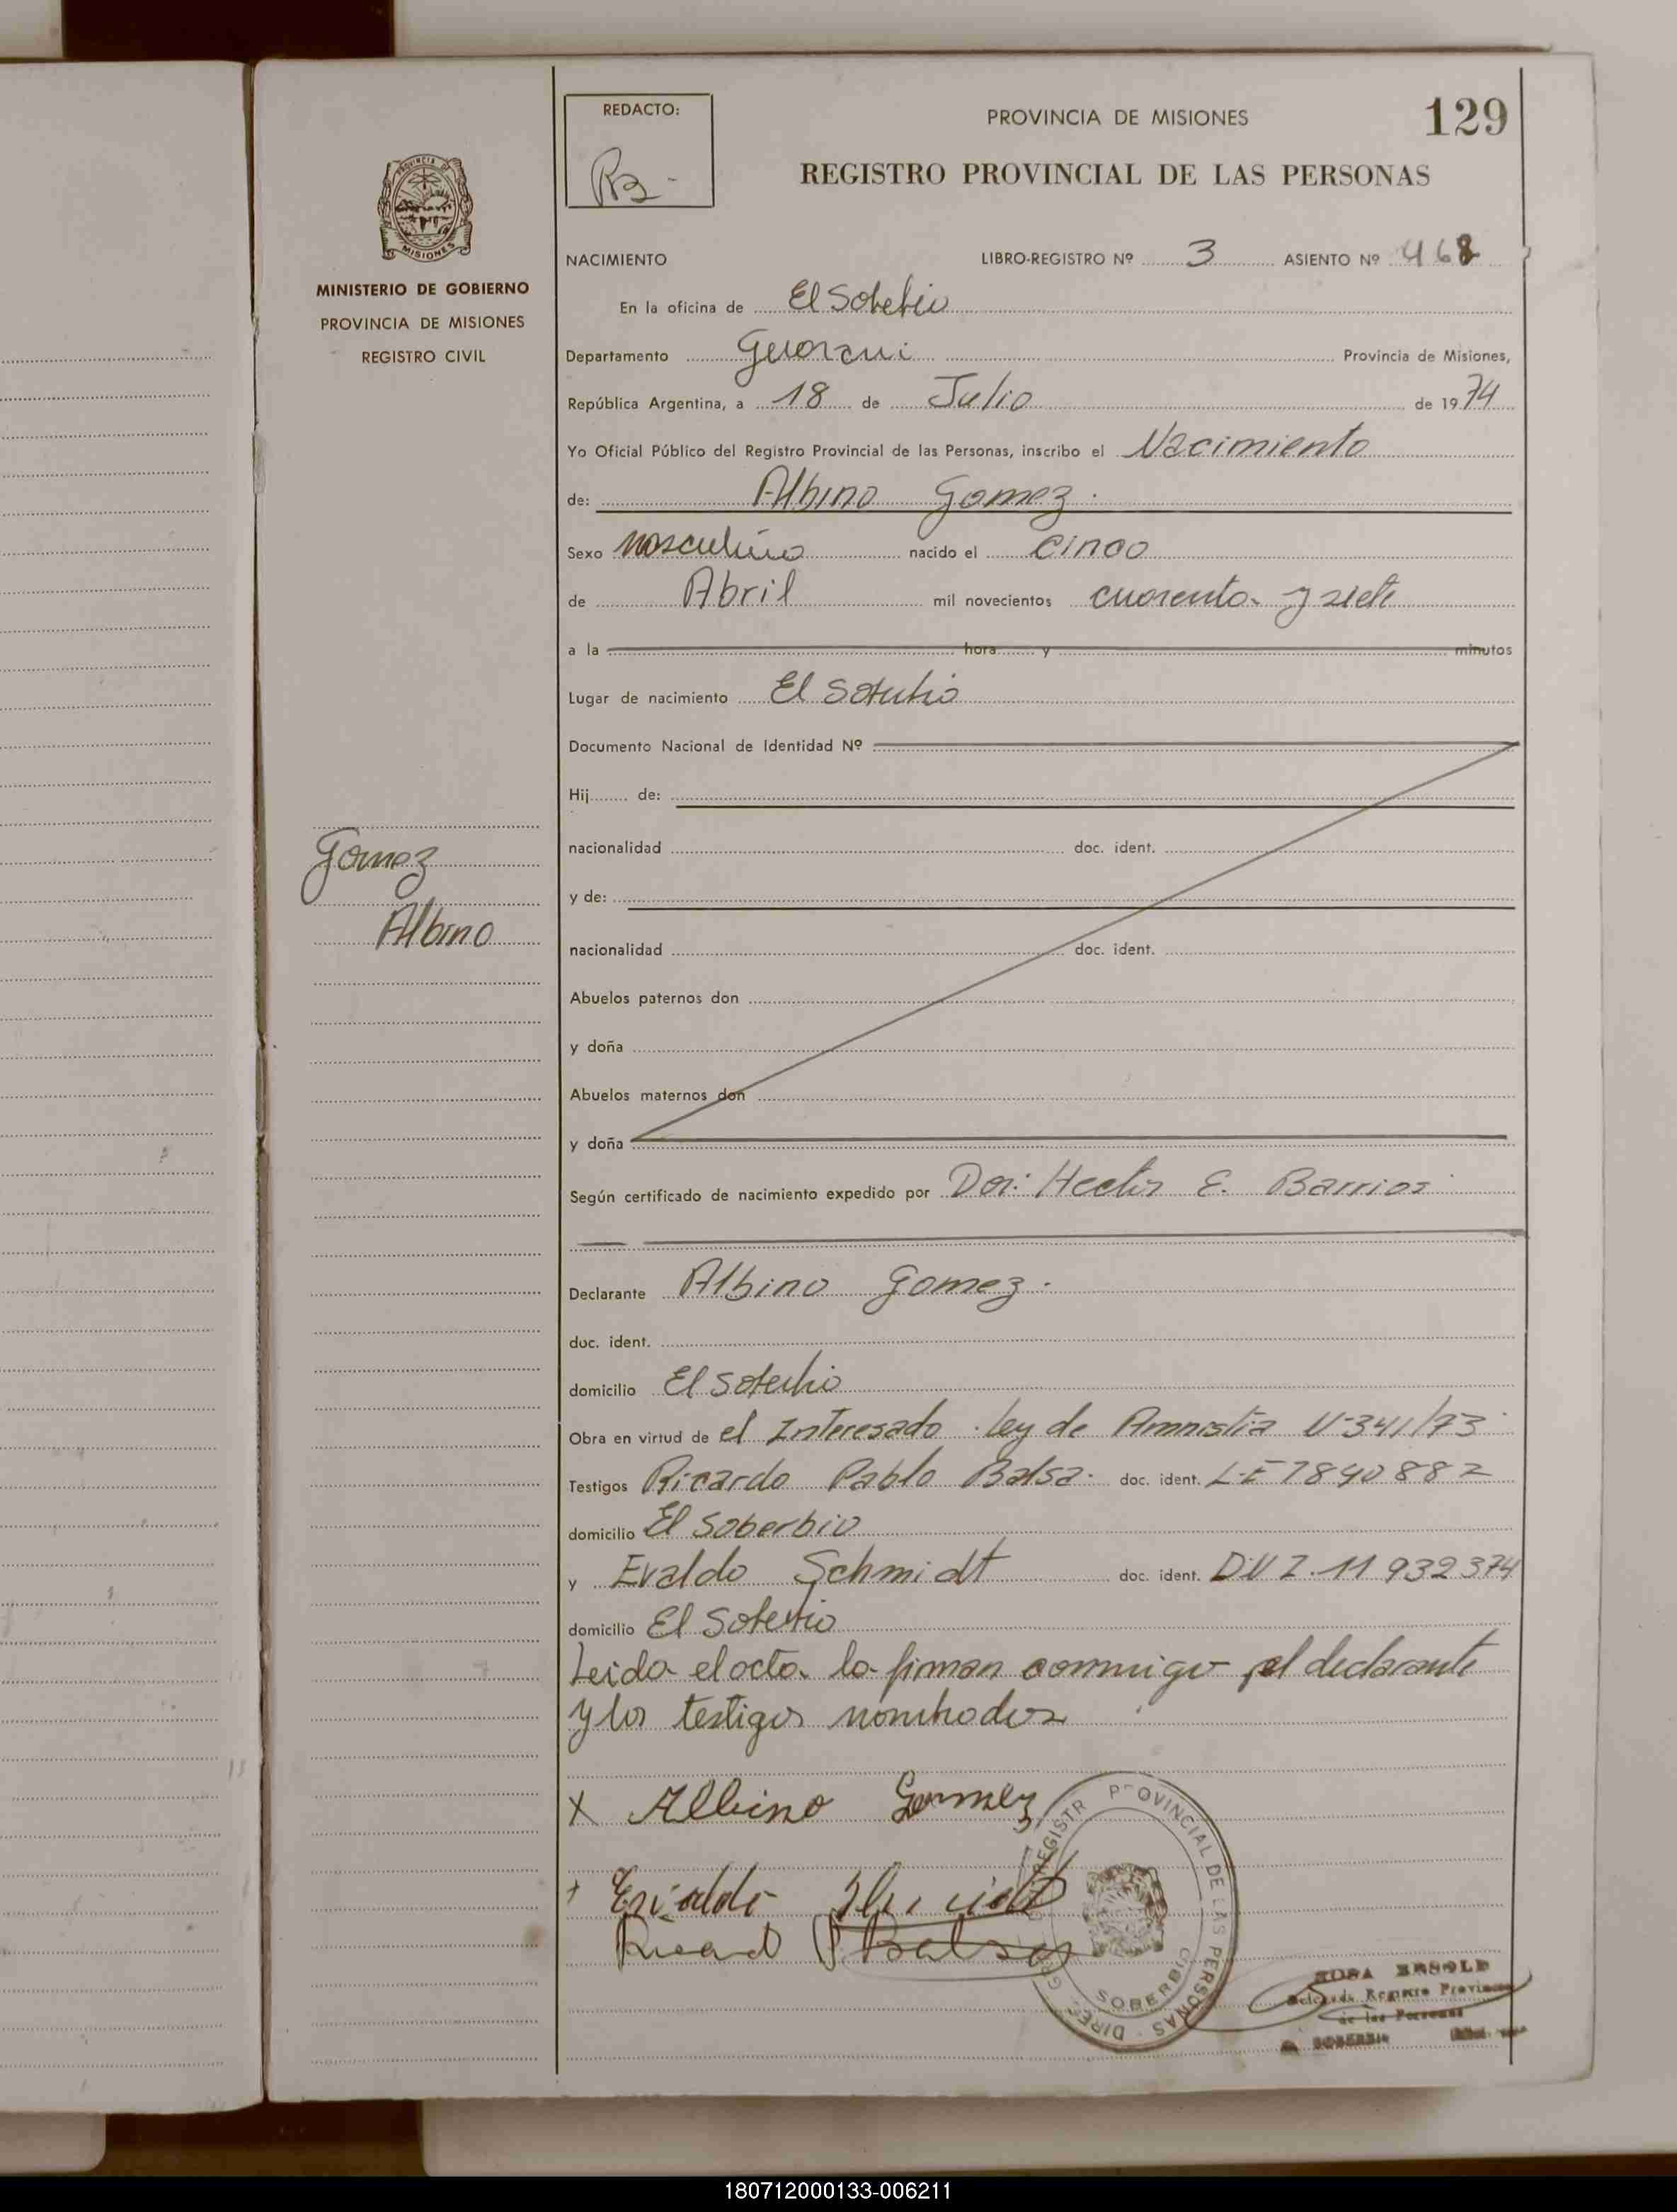 129
REDACTO:
PROVINCIA DE MISIONES
REGISTRO PROVINCIAL DE LAS PERSONAS
PROVINCIA DE
MISIONES
MINISTERIO DE GOBIERNO
PROVINCIA DE MISIONES
REGISTRO CIVIL
NACIMIENTO LIBRO-REGISTRO Nº 3 ASIENTO Nº 468
En la oficina de El Soberbio
Departamento Guarani Provincia de Misiones,
República Argentina, a 18 de Julio de 1974
Yo Oficial Público del Registro Provincial de las Personas, inscribo el Nacimiento
de: Albino Gomez.
Sexo Masculino nacido el cinco
de Abril mil novecientos cuarenta y siete
a la hora y minutos
Lugar de nacimiento El Soberbio
Documento Nacional de Identidad Nº
Hij de:
nacionalidad doc. ident.
Gomez
y de:
Albino
nacionalidad doc. ident.
Abuelos paternos don
y doña
Abuelos maternos don
y doña
Según certificado de nacimiento expedido por Dor: Hector E. Barrios
Declarante Albino Gomez.
doc. ident.
domicilio El Soberbio
Obra en virtud de el Interesado. ley de Amnistia Nº341/73
Testigos Ricardo Pablo Balsa. doc. ident. L-E 7840882
domicilio El Soberbio
y Evaldo Schmidt doc. ident. DNI. 11 932374
domicilio El Soberbio
Leida el acta la firman conmigo el declarante
y los testigos nombrados
X Albino Gomez
Ricard P Balsa
REGISTR PROVINCIAL DE LAS PERSONAS
SOBERBIO
Registro Provincial
de las Personas
SOBERBIO
180712000133-006211